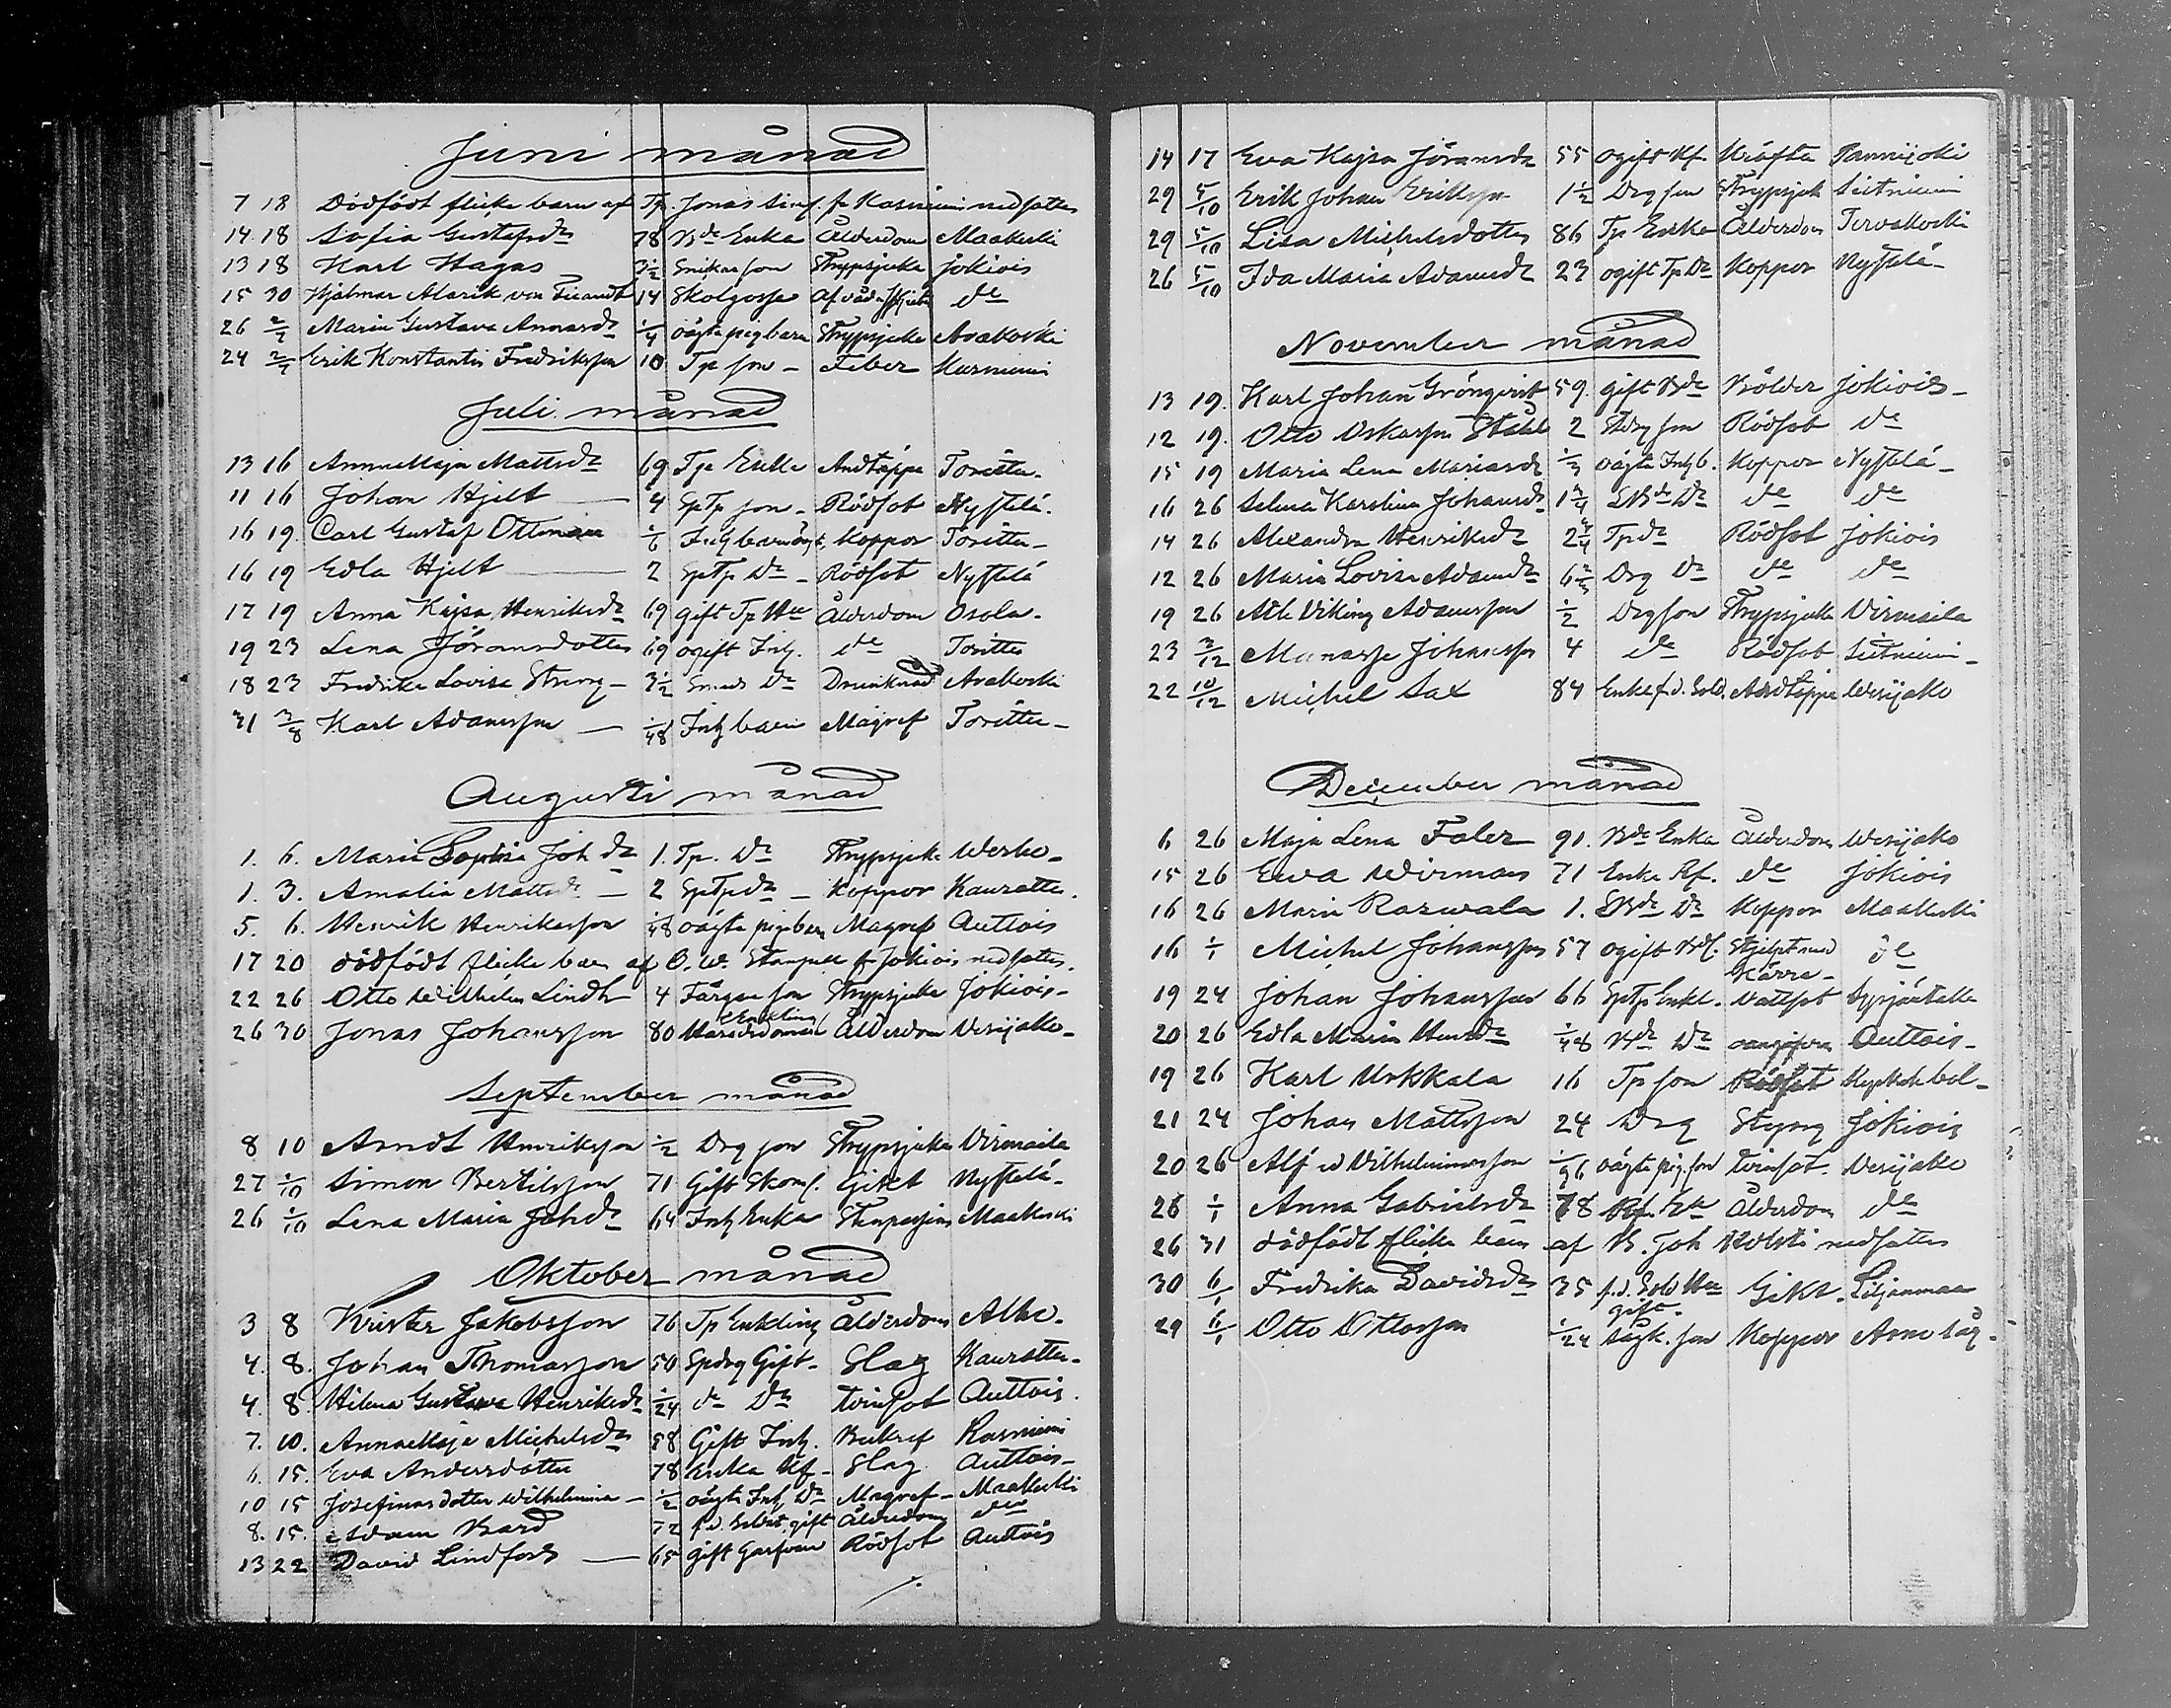 Juni månad
7 18 Dödfödt flicke barn af Tp. Jonas fr Kasniemi nedsattes
14 18 Sofia Gustafsdr 78 Bde Enka Ålderdom Maakeski
13 18 Karl Hagas 3½ Snikar son Strypsjuka Jokiois
15 30 Hjalmar Alarik von 14 Skolgosse Af våda de
26 2/7 Maria Gustava Annasdr 1/4 oägta pig barn Strypsjuka Avakoski
24 2/7 Erik Konstantin Fredriksson 10 Tp son - Feber Kurniemi
Juli månad
13 16 Anna Maja Mattsdr 69 Tp Enka Andtäppa Toritta.
11 16 Johan Hjelt 4 SpTp son - Rödsot Nystelä.
16 19. Carl Gustaf Ottman 1/6 Koppor Toritta -
16 19 Edla Hjelt 2 SpTp Dr - Rödsot Nystelä
17 19 Anna Kajsa Henriksdr 69 gift Tp Hu Ålderdom Osola -
19 23 Lena Göransdotter 69 ogift Inh. de Toritta
18 23 Fredrika Lovisa Streng - 3½ Smeds Dr Drunknad Avakoski
31 3/8 Karl Adamsson - 1/48 Inh barn Magref Toritta -
Augusti månad
1. 6. Maria Sophia Joh dr 1. Tp. Dr Strypsjuka
1. 3. Amalia Mattsdr - 2 SpTp dr - Koppor Kauratta.
5. 6. Henrik Henriksson 1/48 oägta pigebarn Magref Auttois
17 20 dödfödt flicke barn af O. W. fr Jokiois nedsattes.
22 26 Otto Wilhelm Lindh 4 Färgare son Strypsjuka Jokiois -
26 30 Jonas Johansson 80 Enkling Häradsdomare Ålderdom Wesijako -
September månad
8 10 Arndt Henriksson ½ Drg son Strypsjuka Virmaila
27 1/10 Simon Bertilsson 71 Gift Skom. Gikt Nystelä -
26 1/10 Lena Maria Johdr 64 Inh Enka Maakeski
Oktober månad
3 8 Krister Jakobsson 76 Tp Enkling Ålderdom
4. 8. Johan Thomasson 50 Spdrg Gift - Slag Kauratta -
4. 8. Hilma Gustava Henriksdr 1/24 de Dr Tvinsot Auttois.
7. 10. Anna Maja Michelsdr 58 Gift Inh. Bukref Kasniemi
6. 15. Eva Andersdotter 78 Enka Hf - Slag Auttois -
10 15 Josefinas dotter Wilhelmina - ½ oägta Inh Dr Magref - Maakeski
8. 15. Adam Bard 72 f.d. Soldat, gift Ålderdom de
13 22 David Lindfors - 65 gift Garfvare Rödsot Auttois
14 17 Eva Kajsa Göransdr 55 ogift Hf. Kräfta Tannijoki
29 5/10 Erik Johan Eriksson 1½ Drg son Strypsjuk Seitniemi
29 5/10 Lisa Michelsdotter 86 Tp Enka Ålderdom Torvakoski
26 5/10 Ida Maria Adamsdr 23 ogift Tp Dr Koppor Nystelä -
November månad
13 19. Karl Johan Grönqvist 59. gift Bde Bölder Jokiois -
12 19. Otto Oskarsson Ståhl 2 Stdrg son Rödsot de
15 19 Maria Lena Mariasdr 1/3 oägta Inh b. Koppor Nystelä -
16 26 Selma Karolina Johansdr 1 3/4 SBde Dr de de
14 26 Alexandra Henriksdr 2 3/4 Tp dr Rödsot Jokiois
12 26 Maria Lovisa Adamsdr 6 2/3 Drg Dr de de
19 26 Atle Viking Adamsson ½ Drg son Strypsjuka Virmaila
23 3/12 Manasse Johansson 4 de Rödsot Seitniemi -
22 10/12 Michel Sax 84 Enkl f.d. Sold. Andtäppa Wesijako
December månad
6 26 Maja Lena Faler 91. Bde Enka Ålderdom Wesijako
15 26 Ewa Wirman 71 Enka Rf. de Jokiois
16 26 Maria Raswala 1. SBde Dr Koppor Maakeski
16 1/1 Michel Johansson 57 ogift Stjelpt med Kärra - de
19 24 Johan Johansson 66 SpTp Enkl. Vattsot Syrjäntaka
20 26 Edla Maria Hendr 1/48 Bde Dr oangifven Auttois -
19 26 Karl Urkkala 16 Tp son Rödsot
21 24 Johan Mattsson 24 Drg Styng Jokiois
20 26 Alf Wilhelminasson 1/96 oägta pig. son Tvinsot. Wesijako
26 1/1 Anna Gabrielsdr 78 Rf. Eka Ålderdom de
26 31 dödfödt flicke barn af B. Joh nedsattes
30 6/1 Fredrika Davidsdr 35 f.d. Sold Hu gift. Gikt. Liljanmaa
29 6/1 Otto Ottosson 1/24 sågk. son Koppor Arne såg -